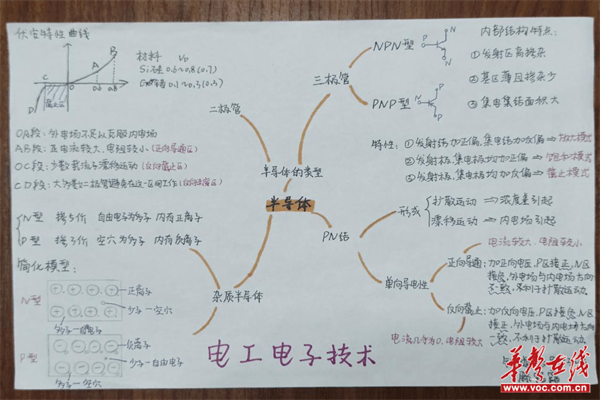 伏安特性曲线
材料 V₀
Si:硅 0.6~0.8(0.7)
Ge:锗 0.1~0.3(0.3)
B
A
C
O
0.6
0.8
D
截止区
二极管
三极管
NPN型
PNP型
P
N
N
P
内部结构特点:
①发射区高掺杂
②基区薄且掺杂少
③集电集结面积大
OA段:外电场不足以克服内电场
AB段:正电流较大、电阻较小(正向导通区)
OC段:少数载流子漂移运动(反向截止区)
CD段:大多数二极管避免在这一区间工作
特性:①发射结加正偏,集电结加反偏⇒放大模式
②发射极、集电极均加正偏⇒饱和模式
③发射极、集电极均加反偏⇒截止模式
半导体的类型
半导体
PN结
形成
扩散运动⇒浓度差引起
漂移运动⇒内电场引起
N型 掺5价 自由电子为多子 内有正离子
P型 掺3价 空穴为多子 内有负离子
杂质半导体
简化模型:
N型
正离子
少子—空穴
多子—自由电子
P型
负离子
少子—自由电子
多子—空穴
单向导电性
电流较大、电阻较小
正向导通:加正向电压,P区接正,N区
接负,外电场与内电场方向
不一致,不利于漂移运动
反向截止:加反向电压,P区接负,N区
接正,外电场与内电场方向
一致,不利于扩散运动
电流几乎为0,电阻较大
电工电子技术
华声在线
www.voc.com.cn